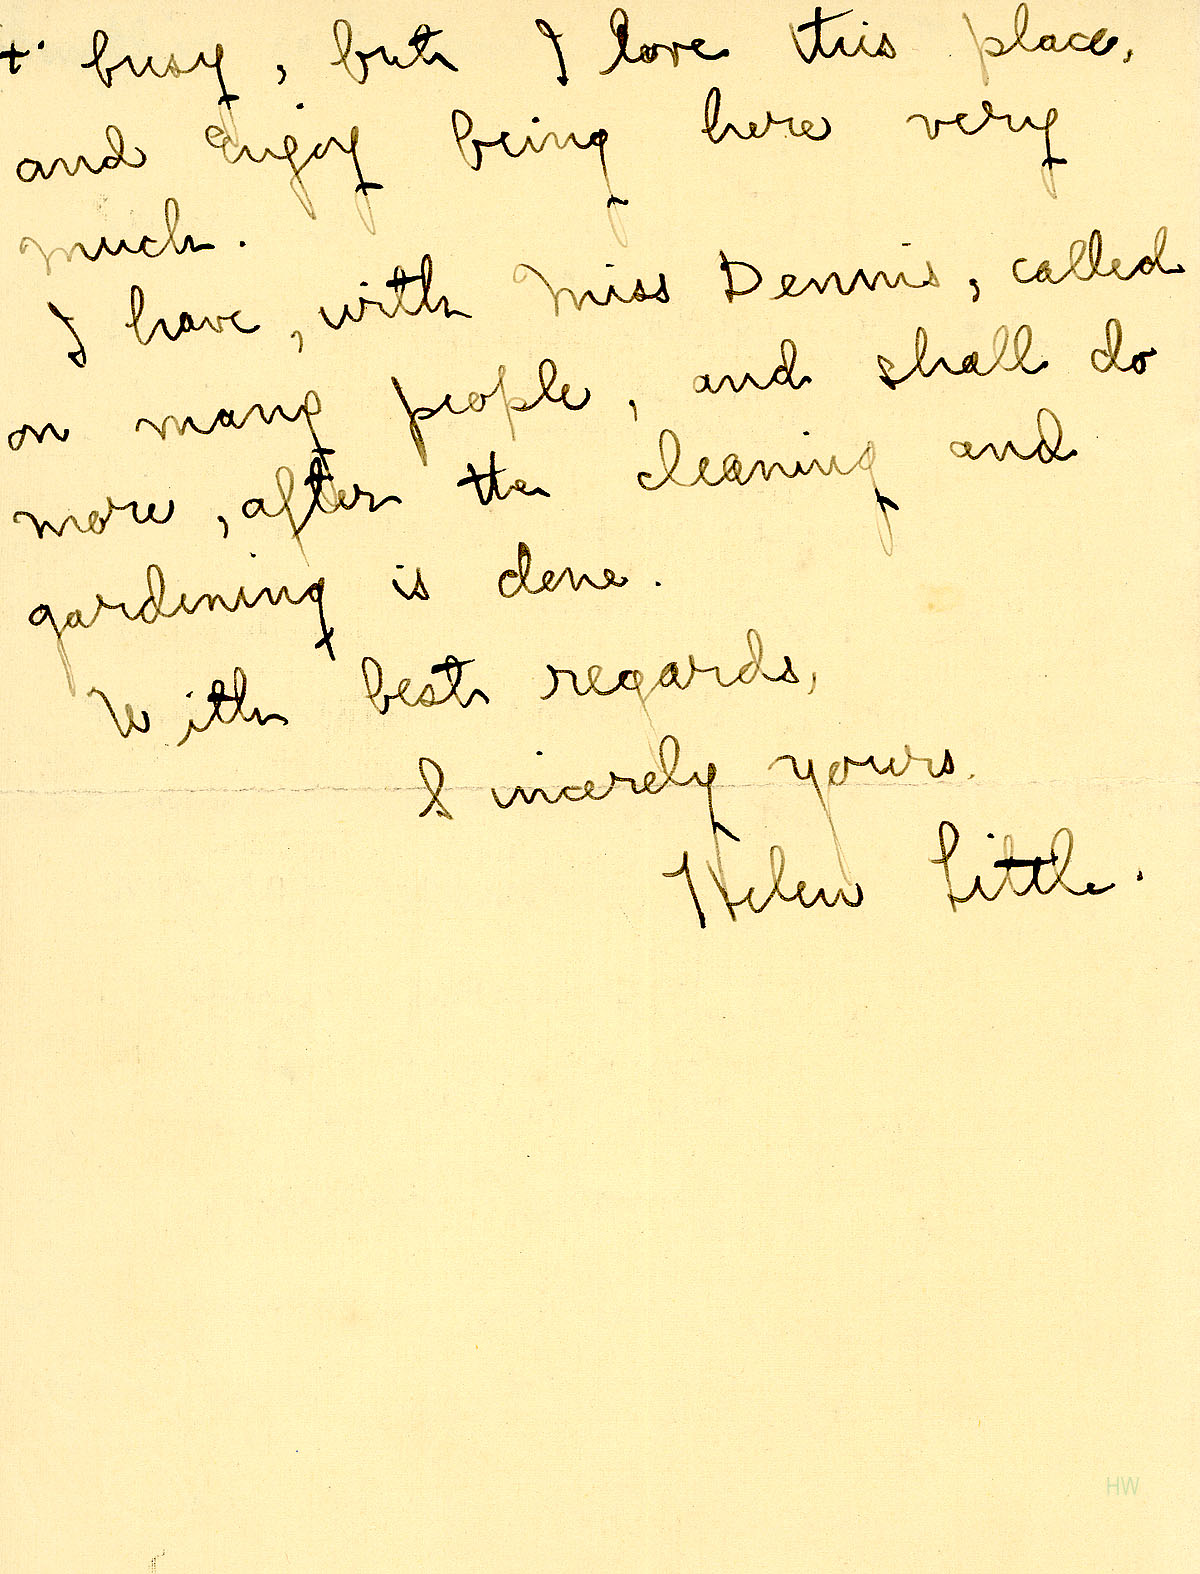 + busy, but I love this place,
and enjoy being here very
much.
I have, with Miss Dennis, called
on many people, and shall do
more, after the cleaning and
gardening is done.
With best regards,
Sincerely yours.
Helen Little.
HW